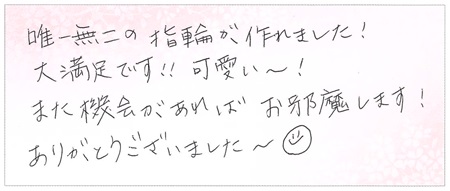 唯一無二の指輪が作れました！
大満足です!! 可愛い～！
また機会があれば お邪魔します！
ありがとうございました～